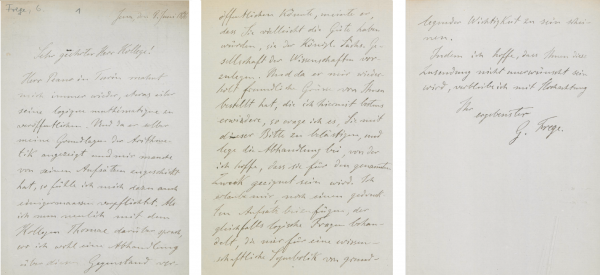 Frege, G.
1
Jena, den
Sehr geehrter Herr Kollege!
Herr Peano in Turin mahnt
mich immer wieder, etwas über
seine logica mathematica zu
veröffentlichen. Und da er selber
meine Grundlagen der Arithme-
tik angezeigt und mir manche
von seinen Aufsätzen zugeschickt
hat, so fühle ich mich dazu auch
einigermaassen verpflichtet. Als
ich nun neulich mit dem
Kollegen Thomae darüber sprach,
wo ich wohl eine Abhandlung
über diesen Gegenstand ver-
öffentlichen könnte, meinte er,
dass Sie vielleicht die Güte haben
würden, sie der Königl. Sächs. Ge-
sellschaft der Wissenschaften vor-
zulegen. Und da er mir wieder-
holt freundliche Grüsse von Ihnen
bestellt hat, die ich hiermit bestens
erwiedere, so wage ich es, Sie mit
dieser Bitte zu belästigen, und
lege die Abhandlung bei, von der
ich hoffe, dass sie für den genannten
Zweck geeignet sein wird. Ich
erlaube mir, noch einen gedruck-
ten Aufsatz beizufügen, der
gleichfalls logische Fragen behan-
delt, die mir für eine wissen-
schaftliche Symbolik von grund-
legender Wichtigkeit zu sein schei-
nen.
Indem ich hoffe, dass Ihnen diese
Zusendung nicht unerwünscht sein
wird, verbleibe ich mit Hochachtung
Ihr ergebenster
G. Frege.